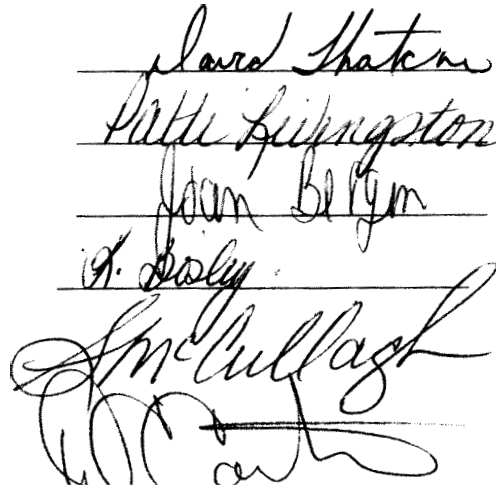 David Thatcher
Patti Livingston
Joan Bergin
K. Bosley
McCullagh